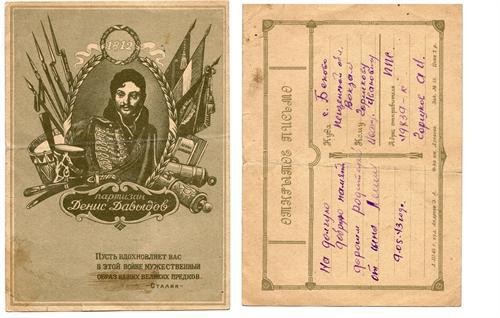 1812
партизан
Денис Давыдов
Пусть вдохновляет вас
в этой войне мужественный
образ наших великих предков.
Сталин
ОТКРЫТОЕ ПИСЬМО
Куда с. Беково
Пензенской обл.
Вокзал
Кому Горшкову
Ивану Ивановичу
Адрес отправителя ППС
19839-к
Горшков А И.
На долгую
добрую память
дорогим родителям
от сына
9.05.43 года